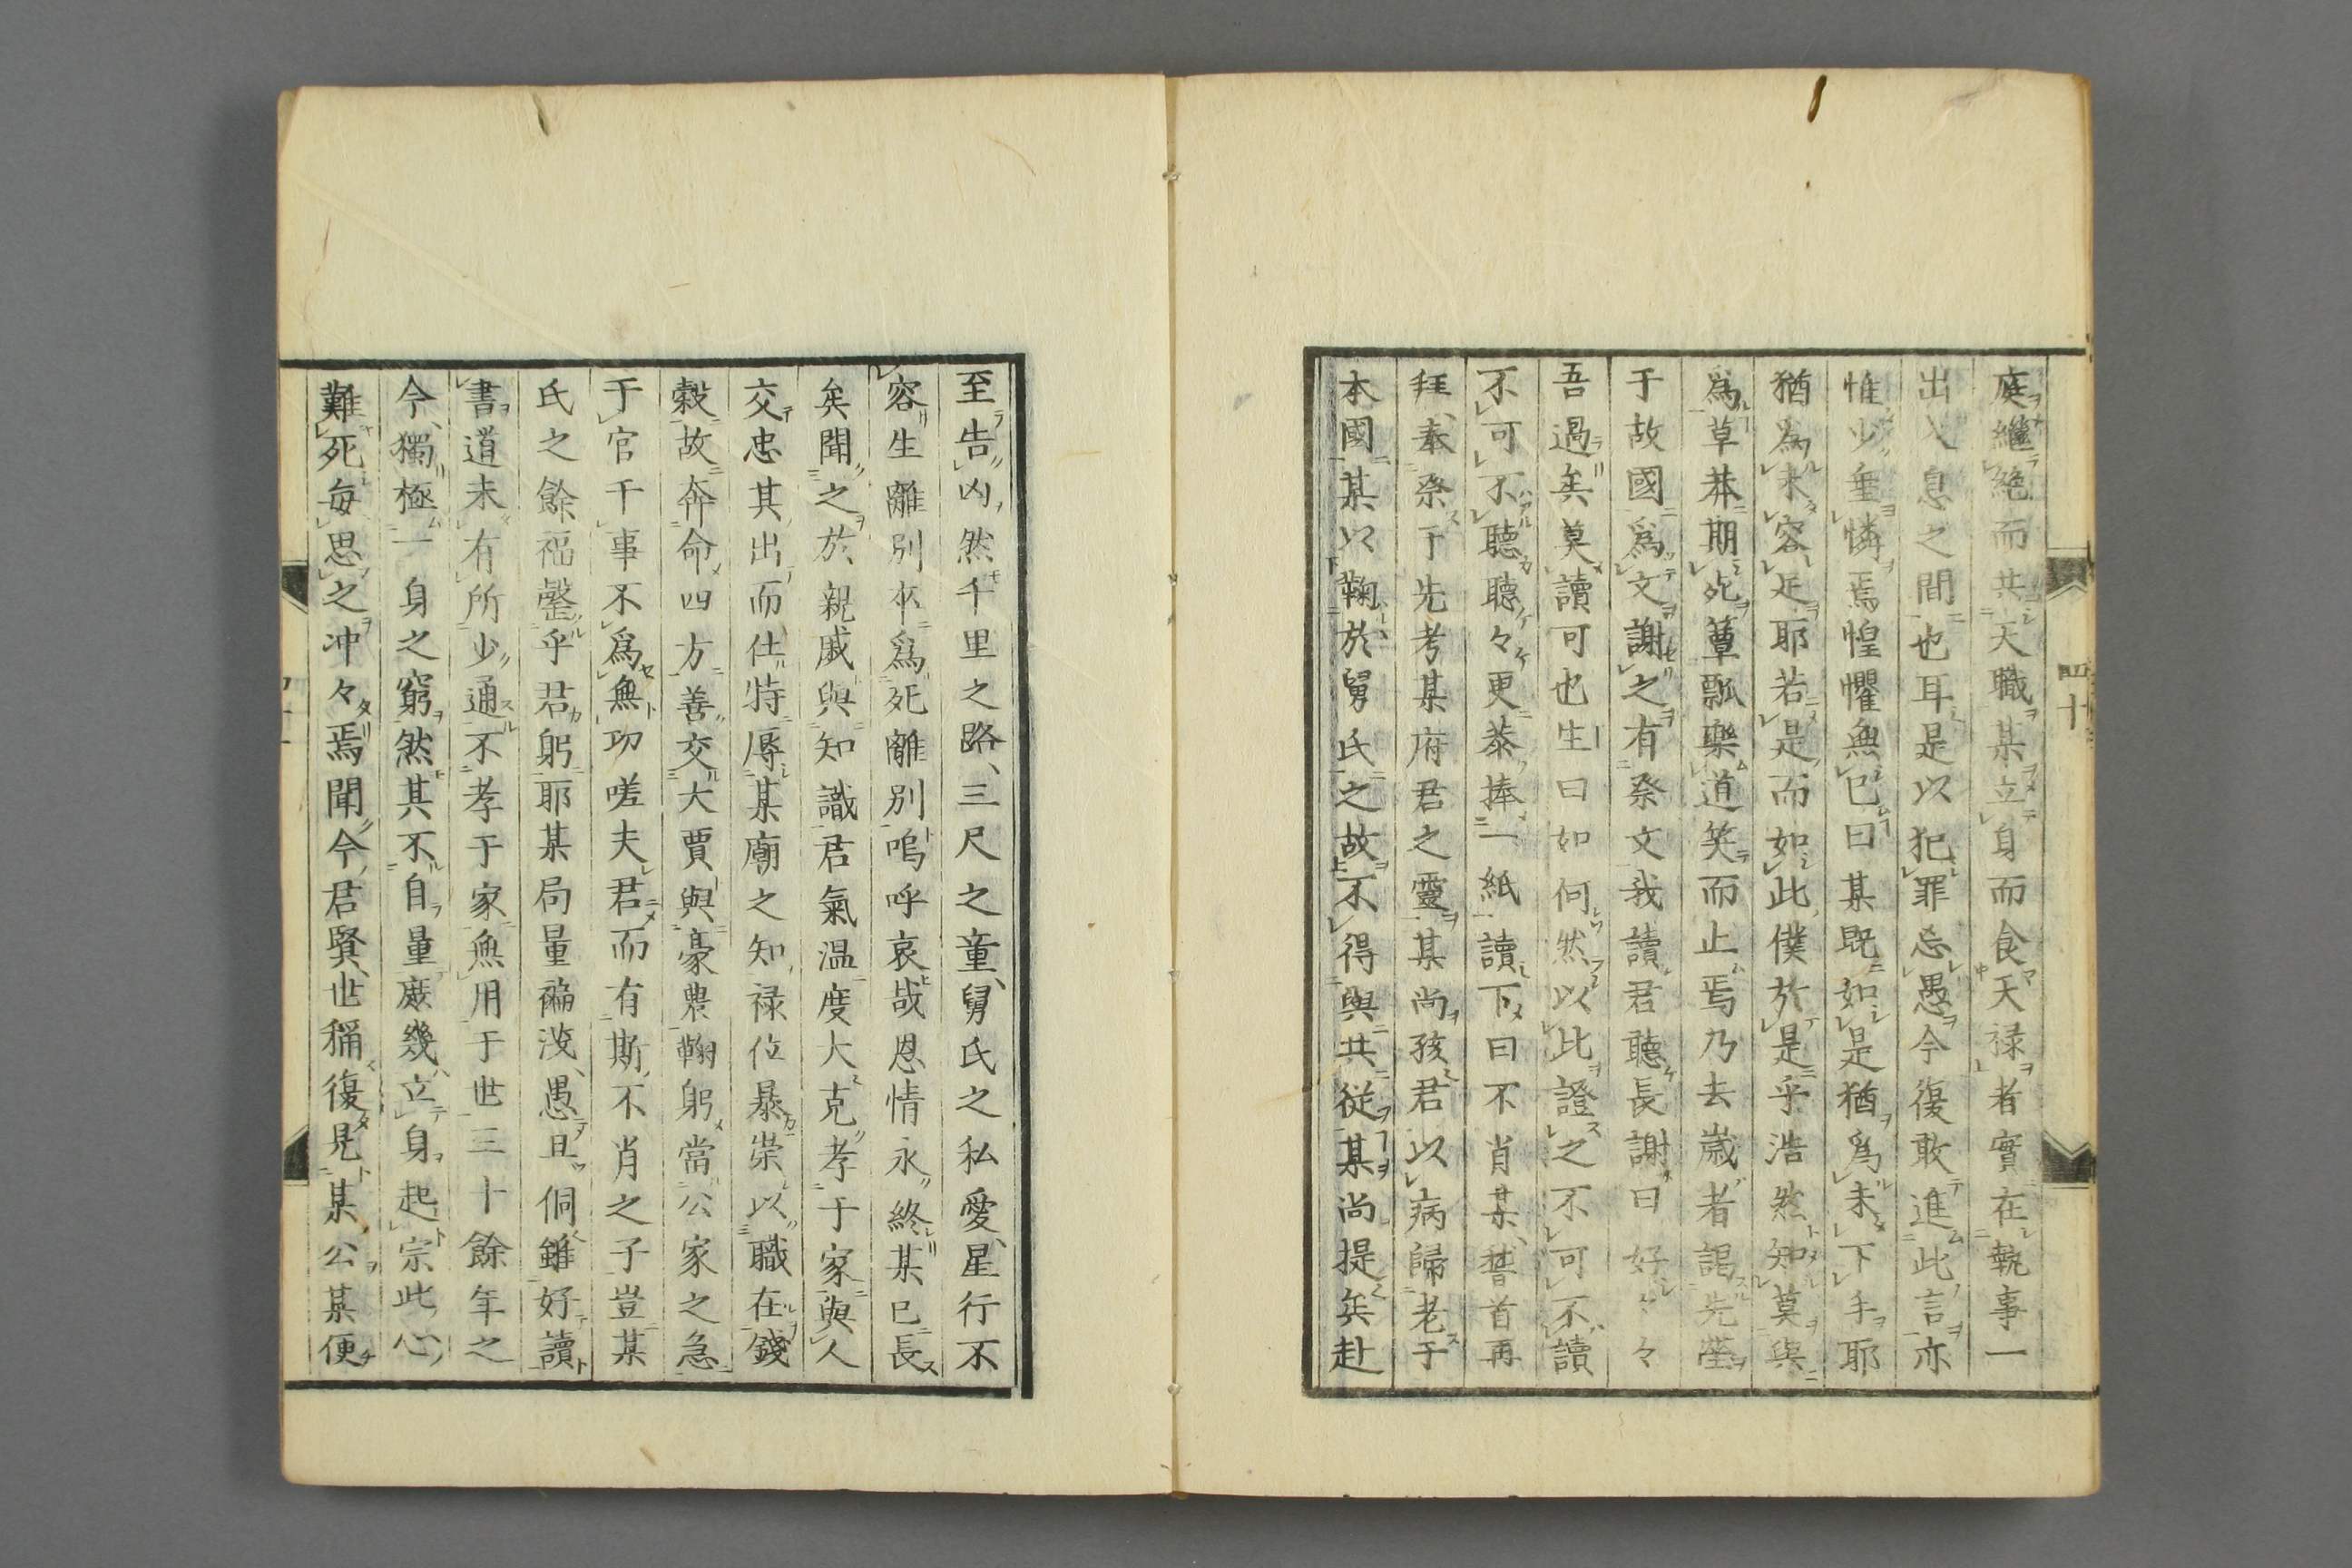 庭繼絶而共天職某立身而食天禄者實在執事一
出入息之間也耳是以犯罪忘愚今復敢進此言亦
惟少垂憐焉惶懼無已曰某既如是猶爲未下手耶
猶為未容足耶若是而如此僕於是乎浩然知莫與
爲草莽期死簞瓢樂道笑而止焉乃去歳者謁先塋
于故國爲文謝之有祭文我讀君聽長謝曰好々々
吾過矣莫讀可也生曰如何然以此證之不可不讀
不可不聽聽々更恭捧一紙讀下曰不肖某稽首再
拜奉祭于先考某府君之靈某尚孩君以病歸老于
本國某以鞠於舅氏之故不得與共従某尚提矣赴
四十
至告凶然千里之路三尺之童舅氏之私愛星行不
容生離別卒爲死離別嗚呼哀哉恩情永終某已長
矣聞之於親戚與知識君氣温度大克孝于家與人
交忠其出而仕特辱某廟之知禄位暴崇以職在錢
穀故奔命四方善交大賈與豪農鞠躬當公家之急
于官干事不爲無功嗟夫君而有斯不肖之子豈某
氏之餘福罄乎君躬耶某局量褊淺愚且侗雖好讀
書道未有所少通不孝于家無用于世三十餘年之
今獨極一身之窮然其不自量庶幾立身起宗此心
難死毎思之冲々焉聞今君賢世稱復見某公某便